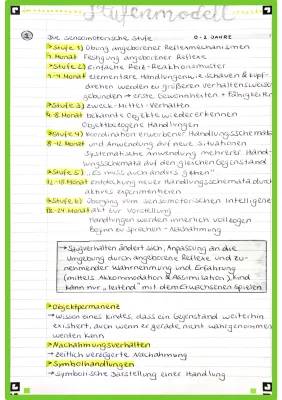 Stufenmodell
① Die sensomotorische Stufe 0-2 JAHRE
→ Stufe 1) Übung angeborener Reflexmechanismen
1 Monat Festigung angeborener Reflexe
→ Stufe 2) einfache Reiz-Reaktionsmuster
1-4 Monat elementare Handlungen wie schauen & Kopf-
drehen werden zu größeren Verhaltensweisen
gebunden → erste Gewohnheiten + Fähigkeiten
→ Stufe 3) Zweck-Mittel-Verhalten
4-8 Monat bekannte Objekte wiedererkennen
Objektbezogene Handlungen
→ Stufe 4) Koordination erworbener Handlungsschemata
8-12 Monat und Anwendung auf neue Situationen
Systematische Anwendung mehrerer Hand-
lungsschemata auf den gleichen Gegenstand
→ Stufe 5) "Es muss auch anders gehen"
12-18 Monat Entdeckung neuer Handlungsschemata durch
aktives experimentieren
→ Stufe 6) Übergang vom sensomotorischen Intelligenz-
18-24 Monat akt zur Vorstellung
Handlungen werden innerlich vollzogen
Beginn zu sprechen - Nachahmung
→ Spielverhalten ändert sich, Anpassung an die
Umgebung durch angeborene Reflexe und zu-
nehmender Wahrnehmung und Erfahrung
(mittels Akkommodation & Assimilation), Kind
kann nur "leitend" mit dem Erwachsenen spielen
→ Objektpermanenz
→ Wissen eines Kindes, dass ein Gegenstand weiterhin
existiert, auch wenn er gerade nicht wahrgenommen
werden kann
→ Nachahmungsverhalten
→ zeitlich verzögerte Nachahmung
→ Symbolhandlungen
→ symbolische Darstellung einer Handlung